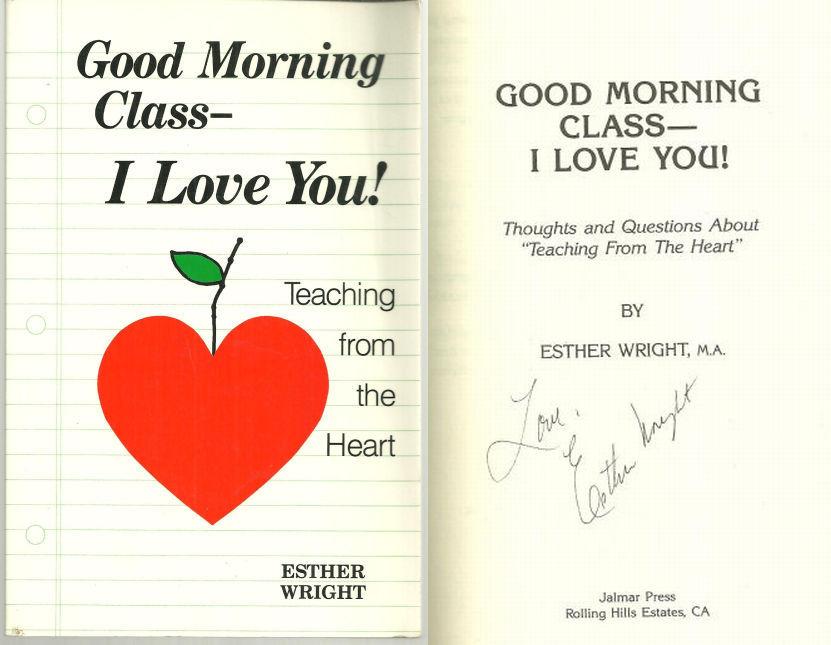 Good Morning
Class–
I Love You!
Teaching
from
the
Heart
ESTHER
WRIGHT
GOOD MORNING
CLASS—
I LOVE YOU!
Thoughts and Questions About
“Teaching From The Heart”
BY
ESTHER WRIGHT, M.A.
Love,
Esther Wright
Jalmar Press
Rolling Hills Estates, CA